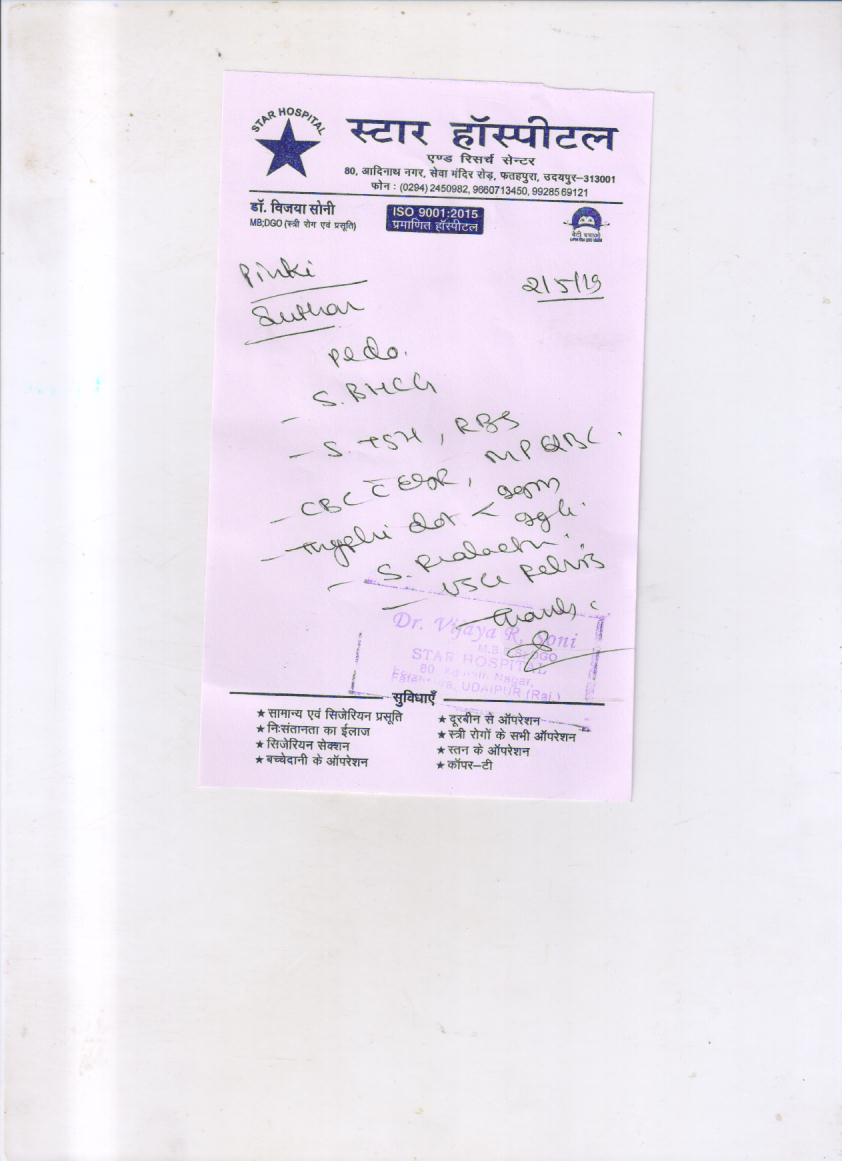 STAR HOSPITAL
स्टार हॉस्पीटल
एण्ड रिसर्च सेन्टर
80, आदिनाथ नगर, सेवा मंदिर रोड़, फतहपुरा, उदयपुर–313001
फोन : (0294) 2450982, 9660713450, 9928569121
डॉ. विजया सोनी
MB;DGO (स्त्री रोग एवं प्रसूति)
ISO 9001:2015
प्रमाणित हॉस्पीटल
बेटी बचाओ
Pinki
Suthar
2/5/19
- S. BHCG
- S. TSH, RBS
- CBC ESR, MP QBC.
- dot < ggm
ggli.
- S. Prolactin.
- USG Pelvis
Thanks
Dr. Vijaya R. Soni
STAR HOSPITAL
UDAIPUR (Raj.)
सुविधाएँ
★ सामान्य एवं सिजेरियन प्रसूति
★ निःसंतानता का ईलाज
★ सिजेरियन सेक्शन
★ बच्चेदानी के ऑपरेशन
★ दूरबीन से ऑपरेशन
★ स्त्री रोगों के सभी ऑपरेशन
★ स्तन के ऑपरेशन
★ कॉपर–टी